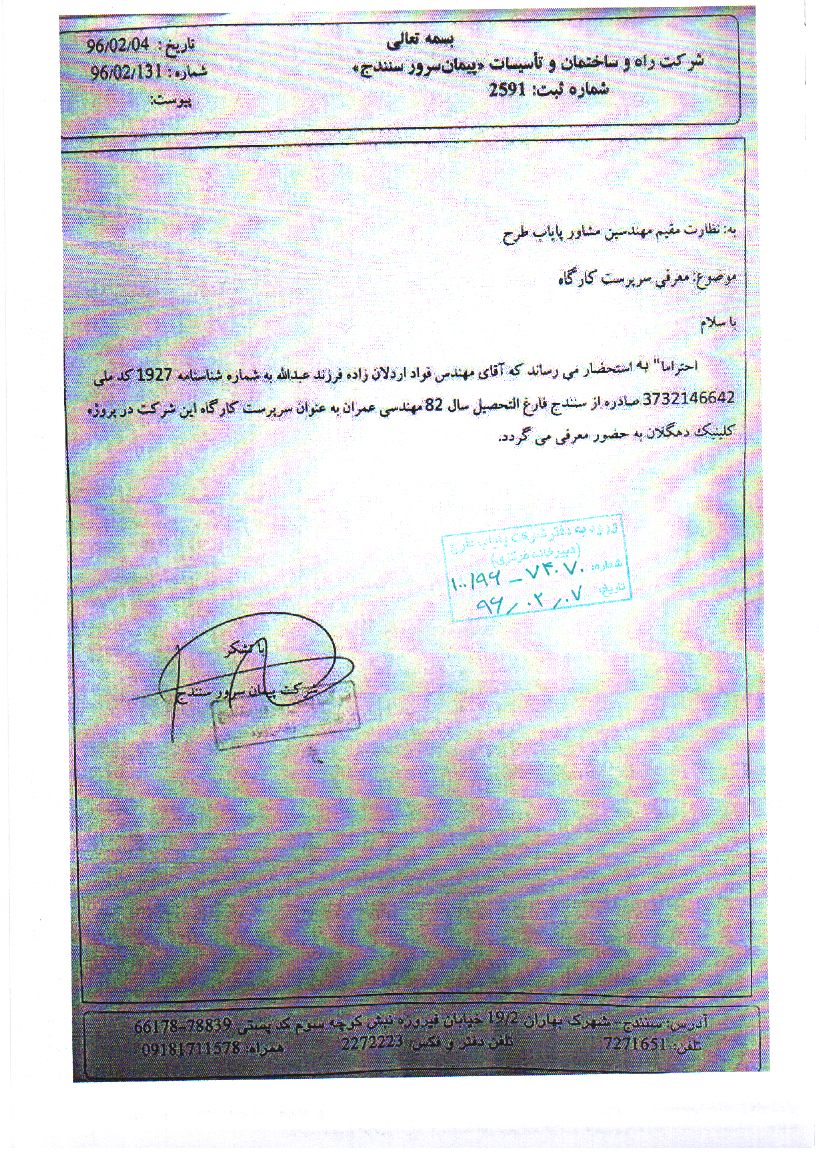 بسمه تعالی
شرکت راه و ساختمان و تأسیسات «پیمان‌سرور سنندج»
شماره ثبت: 2591
تاریخ: 96/02/04
شماره: 96/02/131
پیوست:
به: نظارت مقیم مهندسین مشاور پایاب طرح
موضوع: معرفی سرپرست کارگاه
با سلام
احتراما" به استحضار می رساند که آقای مهندس فواد اردلان زاده فرزند عبدالله به شماره شناسنامه 1927 کد ملی
3732146642 صادره از سنندج فارغ التحصیل سال 82 مهندسی عمران به عنوان سرپرست کارگاه این شرکت در پروژه
کلینیک دهگلان به حضور معرفی می گردد.
ورود به دفتر شرکت پایاب طرح
(دبیرخانه مرکزی)
شماره: ۱۰۰/۹۶ – ۷۴۰۷۰
تاریخ: ۹۶/۰۲/۰۷
با تشکر
شرکت پیمان سرور سنندج
آدرس: سنندج - شهرک بهاران 19/2 خیابان فیروزه نبش کوچه سوم کد پستی 78839-66178
تلفن: 7271651 تلفن دفتر و فکس: 2272223 همراه: 09181711578